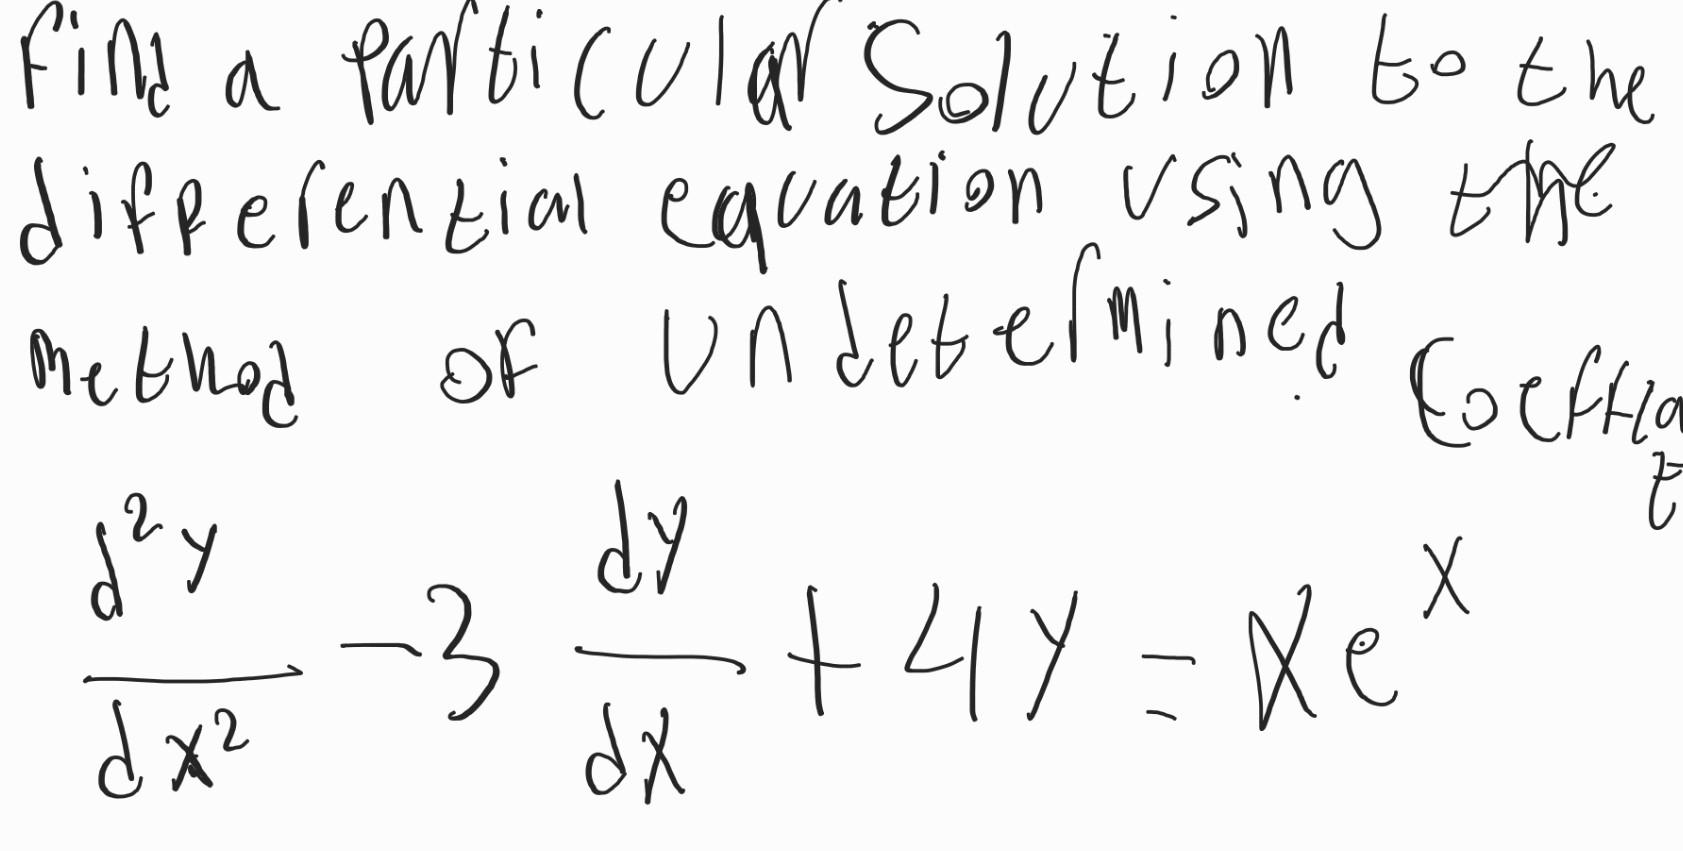 Find a particular Solution to the
differential equation using the
method of undetermined
d²y/dx² - 3 dy/dx + 4y = xe^x